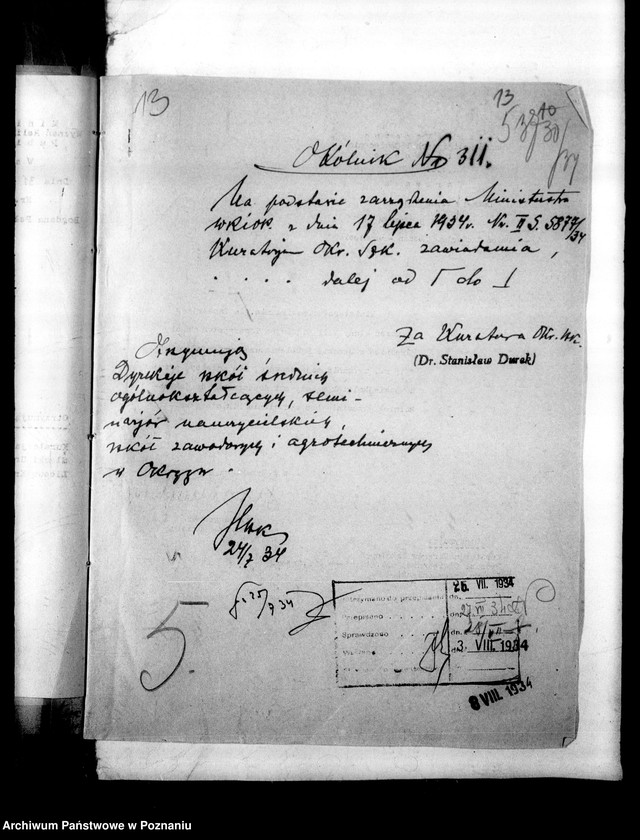 13
13
Okólnik No 311.
Na podstawie zarządzenia Ministerstwa
WRiOP. z dnia 17 lipca 1934 r. Nr. II S. 5877/34
Kuratorjum Okr. Szk. zawiadamia,
. . . . dalej od Γ do ⅃
Za Kuratora Okr. szk.
(Dr. Stanisław Durek)
Otrzymują
Dyrekcje szkół średnich
ogólnokształcących, semi-
narjów nauczycielskich,
szkół zawodowych i agrotechnicznych
w Okręgu.
24/7 34
25/7 34
5.
Otrzymano do przepisania dn. 25. VII. 1934
Przepisano dn. 27 VII 34
Sprawdzono dn. 28/VII
Wysłano dn. 3. VIII. 1934
8 VIII. 1934
Archiwum Państwowe w Poznaniu